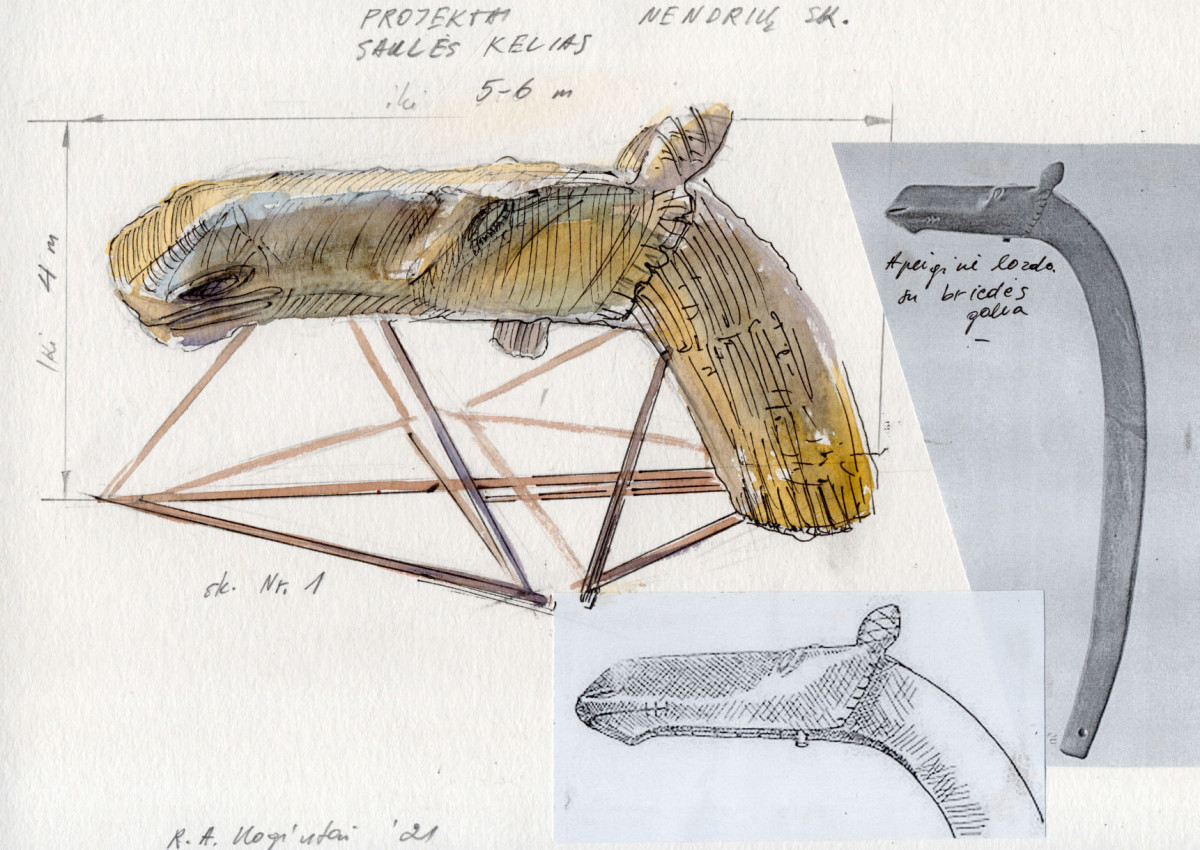 PROJEKTAI NENDRIŲ SK.
SAULĖS KELIAS
iki 5-6 m
Iki 4 m
Apeiginė lazda
su briedės
galva
sk. Nr. 1
R. A. '21